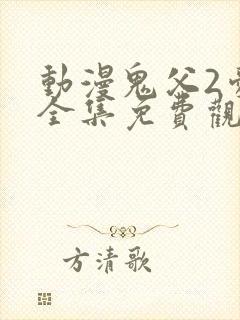 動漫鬼父2
全集免費觀
方清歌